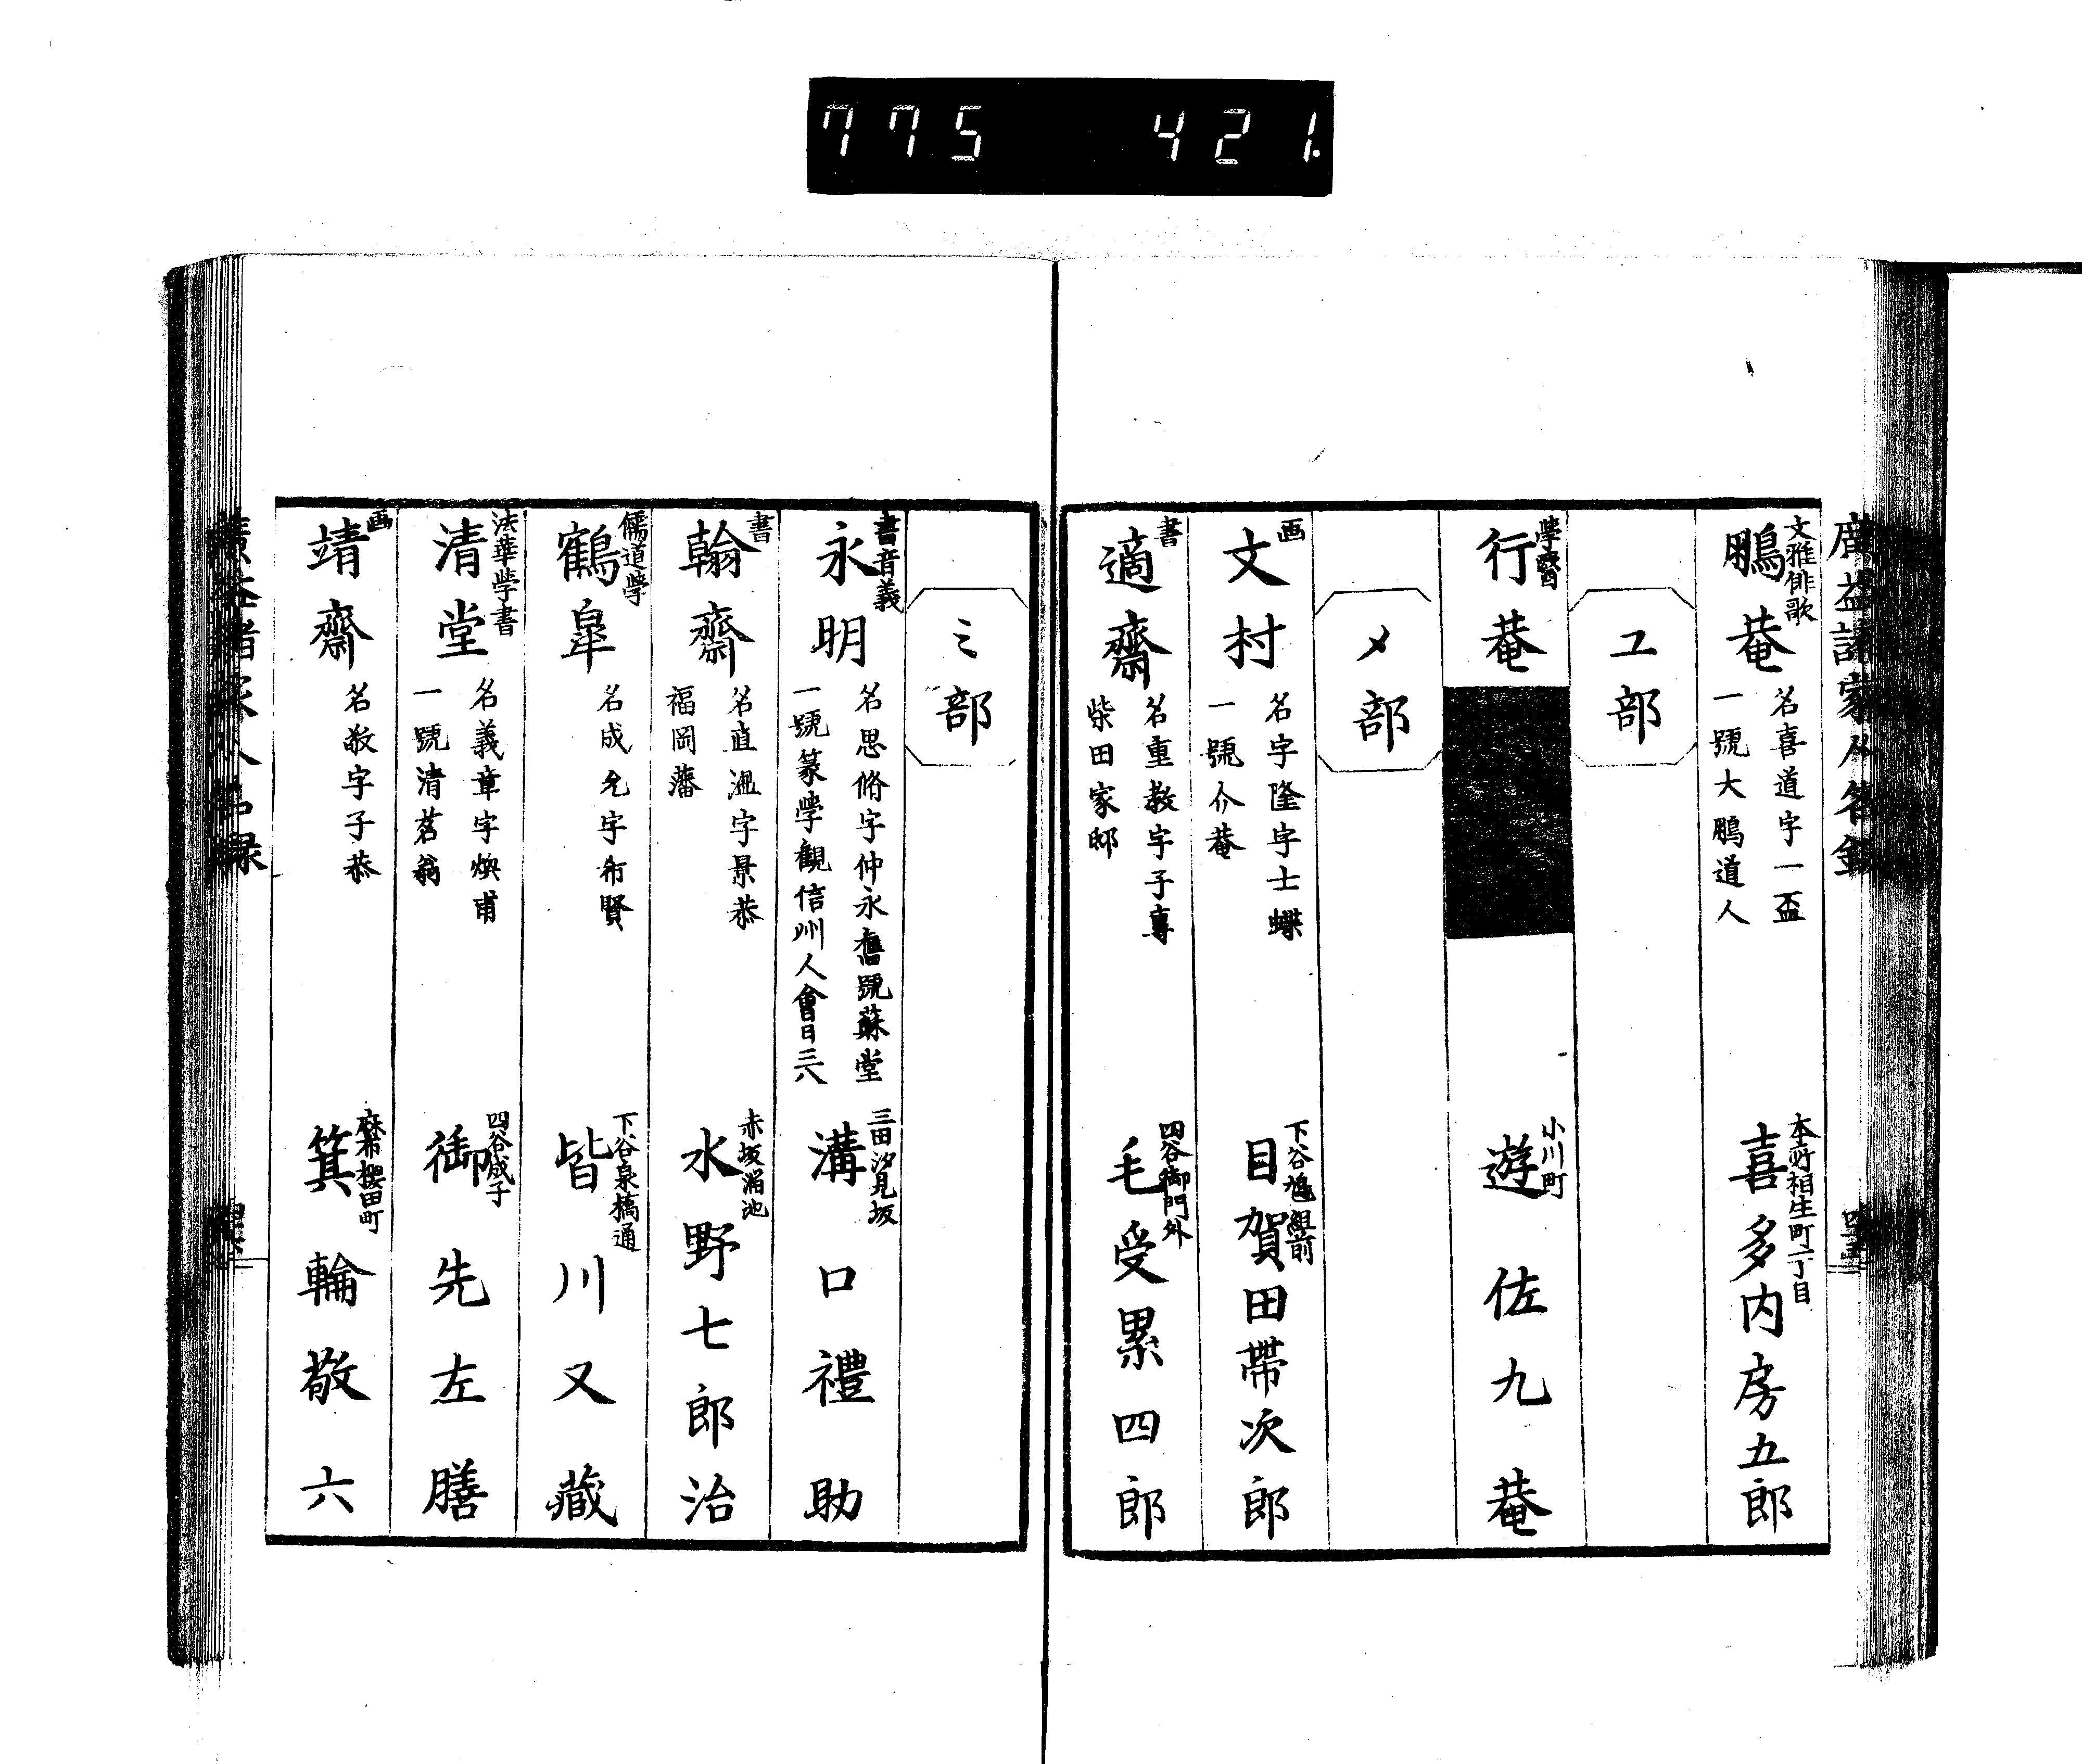 775 421.
廣益諸家人名録
文雅俳歌
鵬菴
名喜道字一盃
一號大鵬道人
本所相生町一丁目
喜多内房五郎
ユ部
學醫
行菴
小川町
遊佐九菴
メ部
画
文村
名字隆字士蝶
一號介菴
下谷鳩組前
目賀田帶次郎
書
適齋
名重教字子專
柴田家邸
四谷御門外
毛受累四郎
ミ部
書音義
永明
名思脩字仲永舊號蘇堂
一號篆學觀信州人會日三六
三田汐見坂
溝口禮助
書
翰齋
名直温字景恭
福岡藩
赤坂溜池
水野七郎治
儒道学
鶴皐
名成允字希賢
下谷泉橋通
皆川又藏
法華学書
清堂
名義章字煥甫
一號清茗翁
四谷成子
御先左膳
画
靖齋
名敬字子恭
麻布櫻田町
箕輪敬六
廣益諸家人名録